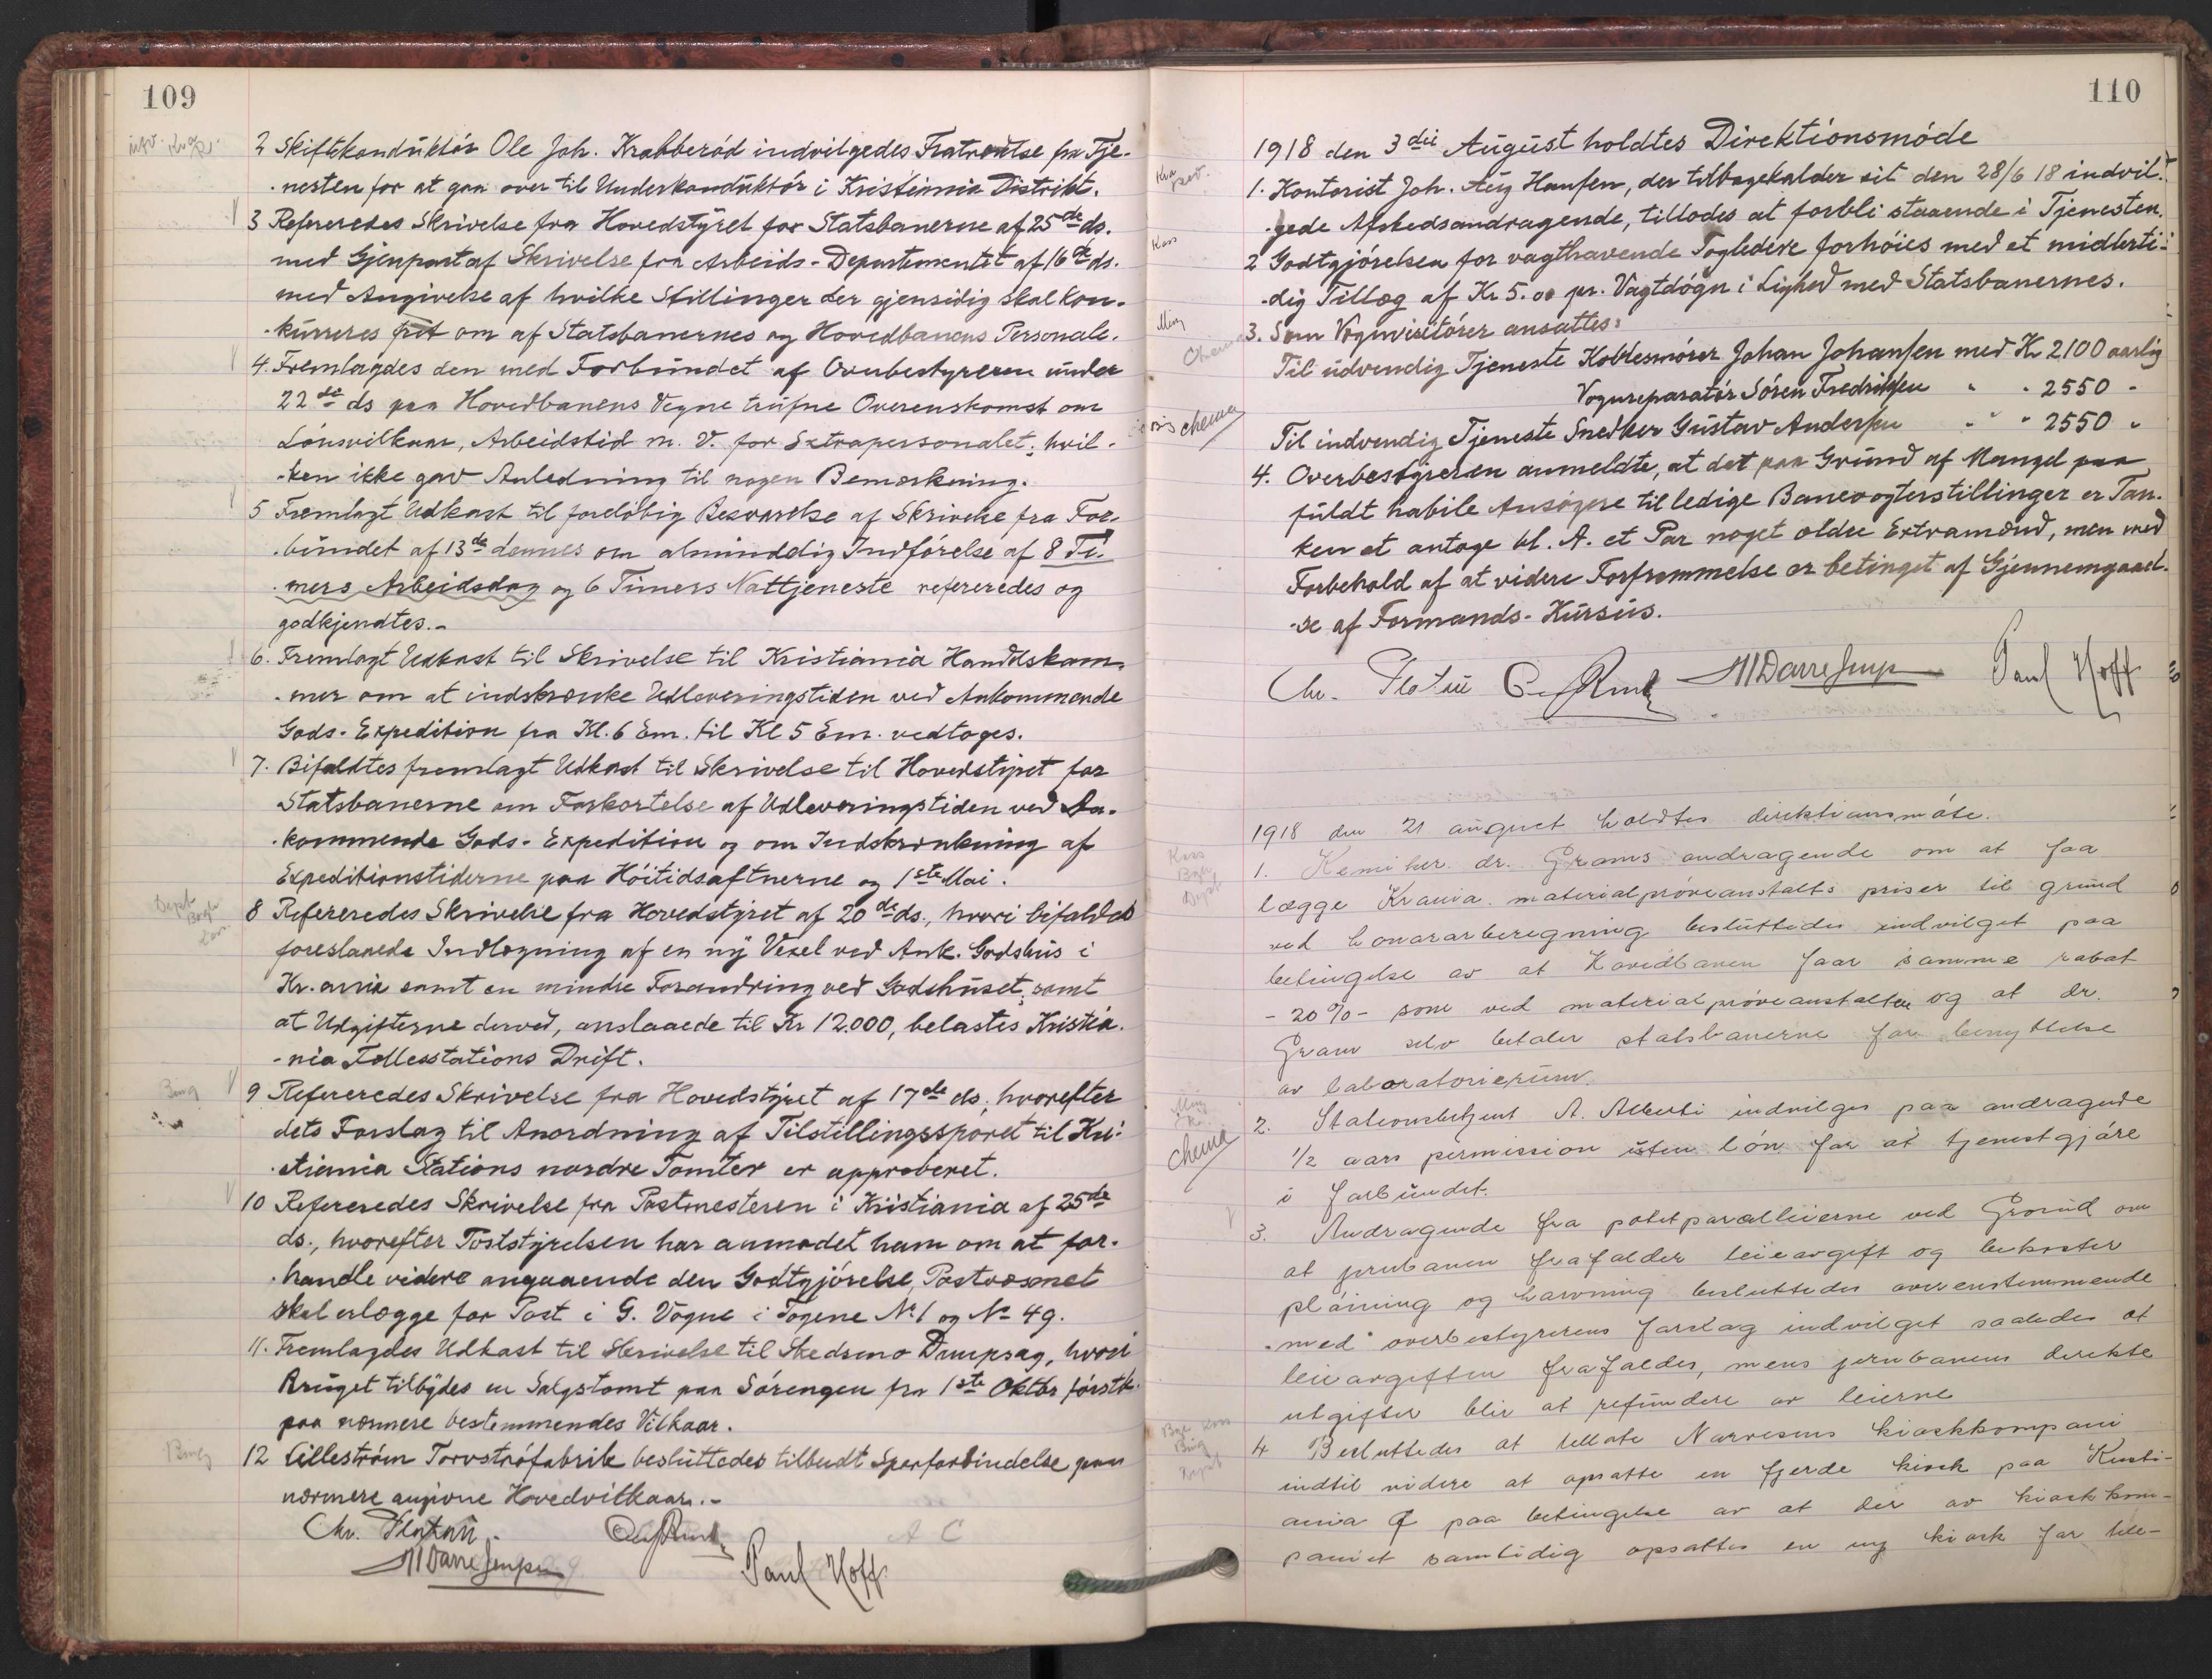 109
2 Skiftekonduktór Ole Joh. Krabberód indvilgedes Fratrædelse fra Tje-
-nesten for at gaa over til Underkonduktór i Kristiania Distrikt.
3 Refereredes Skrivelse fra Hovedstyret for Statsbanerne af 25de ds.
med Gjenpart af Skrivelse fra Arbeids-Departementet af 16de ds.
med Angivelse af hvilke Stillinger der gjensidig skal kon-
-kurreres frit om af Statsbanernes og Hovedbanens Personale.
4. Fremlagdes den med Forbundet af Overbestyreren under
22de ds paa Hovedbanens Vegne trufne Overenskomst om
Lónsvilkaar, Arbeidstid m. v. for Extrapersonalet, hvil-
-ken ikke gav Anledning til nogen Bemærkning.
5 Fremlagt Udkast til foreløbig Besvarelse af Skrivelse fra For-
-bundet af 13de dennes om almindelig Indfórelse af 8 Ti-
-mers Arbeidsdag og 6 Timers Nattjeneste refereredes og
godkjendtes.-
6. Fremlagt Udkast til Skrivelse til Kristiania Handelskam-
-mer om at indskrænke Udleveringstiden ved Ankommende
Gods-Expedition fra Kl. 6 Em. til Kl 5 Em. vedtoges.
7. Bifaldtes fremlagt Udkast til Skrivelse til Hovedstyret for
Statsbanerne om Forkortelse af Udleveringstiden ved An-
-kommende Gods-Expedition og om Indskrænkning af
Expeditionstiderne paa Hóitidsaftnerne og 1ste Mai.
8 Refereredes Skrivelse fra Hovedstyret af 20de ds., hvori bifaldes
foreslaaede Indlægning af en ny Vexel ved Ank. Godshus i
Kr.ania samt en mindre Forandring ved Godshuset, samt
at Udgifterne derved, anslaaede til Kr 12.000, belastes Kristia-
-nia Fællesstations Drift.
9 Refereredes Skrivelse fra Hovedstyret af 17de ds., hvorefter
dets Forslag til Anordning af Tilstillingssporet til Kri-
-stiania Stations nordre Tomter er approberet.
10 Refereredes Skrivelse fra Postmesteren i Kristiania af 25de
ds., hvorefter Poststyrelsen har anmodet ham om at for-
-handle videre angaaende den Godtgjórelse, Postvæsenet
skal erlægge for Post i G. Vogne i Togene No. 1 og No 49.
11. Fremlagdes Udkast til Skrivelse til Skedsmo Dampsag, hvori
Bruget tilbydes en Salgstomt paa Sórengen fra 1ste Oktbr fórstk.
paa nærmere bestemmendes Vilkaar.
12 Lillestróm Torvstrófabrik besluttedes tilbudt Sporforbindelse paa
nærmere angivne Hovedvilkaar.-
Chr. Platou.
Paul Hoff
110
1918 den 3die August holdtes Direktionsmóde
1. Kontorist Joh. Aug Hansen, der tilbagekalder sit den 28/6 18 indvil-
-gede Afskedsandragende, tillodes at forbli staaende i Tjenesten.
2 Godtgjórelsen for vagthavende Togledere forhóies med et midlerti-
-dig Tillæg af Kr 5.00 pr. Vagtdógn i Lighed med Statsbanernes.
3. Som Vognvisitórer ansattes:
Til udvendig Tjeneste Koblesmórer Johan Johansen med Kr 2100 aarlig
Vognreparatór Sóren Fredriksen " " 2550 "
Til indvendig Tjeneste Snedker Gustav Andersen " " 2550 "
4. Overbestyreren anmeldte, at det paa Grund af Mangel paa
fuldt habile Ansógere til ledige Banevogterstillinger er Tan-
ken at antage bl. A. et Par noget ældre Extramænd, men med
Forbehold af at videre Forfremmelse er betinget af Gjennemgaael-
-se af Formands-Kursus.
Chr. Platou
Paul Hoff
1918 den 21 august holdtes direktionsmóte.
1. Kemiker dr. Grams andragende om at faa
lægge Krania. materialpróveanstalts priser til grund
ved honorarberegning besluttedes indvilget paa
betingelse av at Hovedbanen faar samme rabat
- 20% - som ved materialpróveanstalten og at dr.
Gram selv betaler statsbanerne for benyttelse
av laboratorierum.
2. Stationsbetjent A. Alberti indvilges paa andragende
1/2 aars permission uten lón for at tjenestgjóre
i forbundet.
3. Andragende fra potetparcelleierne ved Grorud om
at jernbanen frafalder leieavgift og bekoster
plóining og harvning besluttedes overenstemmende
med overbestyrerens forslag indvilget saaledes at
leieavgiften frafaldes, mens jernbanens direkte
utgifter blir at refundere av leierne
4 Besluttedes at tillate Narvesens kioskkompani
indtil videre at opsætte en fjerde kiosk paa Kristi-
ania Ø paa betingelse av at der av kioskkom-
paniet samtidig opsættes en ny kiosk for tele-